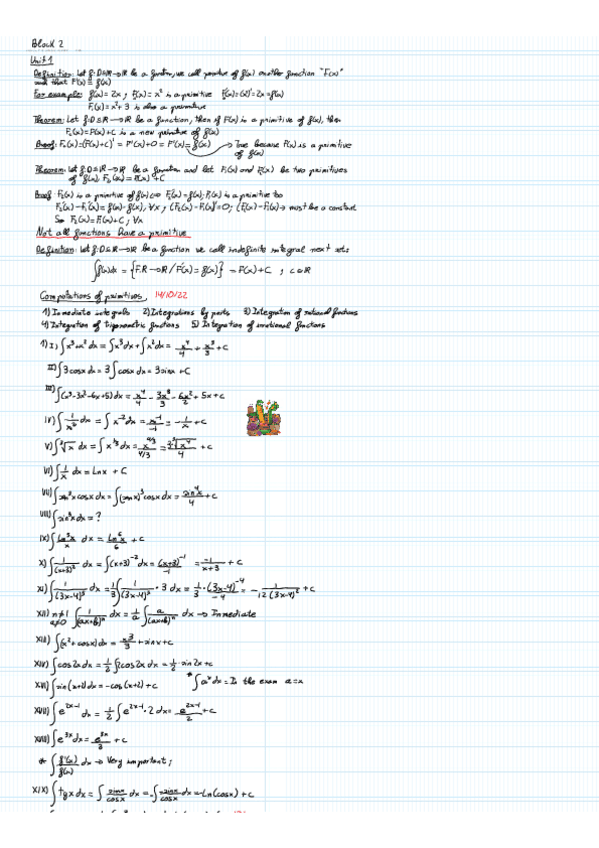 Block 2
Unit 1
Definition: Let f: D⊆R→R be a function, we call primitive of f(x) another function "F(x)"
such that F'(x) = f(x)
For example: f(x) = 2x ; F₁(x) = x² is a primitive F₁'(x) = (x²)' = 2x = f(x)
F₂(x) = x² + 3 is also a primitive
Theorem: Let f: D⊆R→R be a function, then if F(x) is a primitive of f(x), then
F₂(x) = F(x) + C is a new primitive of f(x)
Proof: F₂'(x) = (F(x) + C)' = F'(x) + 0 = F'(x) = f(x) → True because F(x) is a primitive
of f(x)
Theorem: Let f: D⊆R→R be a function and let F₁(x) and F₂(x) be two primitives
of f(x), F₂(x) = F₁(x) + C
Proof: F₂(x) is a primitive of f(x) ⇔ F₂'(x) = f(x); F₁(x) is a primitive too
F₂'(x) - F₁'(x) = f(x) - f(x), ∀x ; (F₂(x) - F₁(x))' = 0 ; (F₂(x) - F₁(x)) → must be a constant
So F₂(x) = F₁(x) + C ; ∀x
Not all functions have a primitive
Definition: Let f: D⊆R→R be a function we call indefinite integral next set:
∫f(x)dx = {F: R→R / F'(x) = f(x)} = F(x) + C ; c∈R
Computations of primitives. 14/10/22
1) Inmediate integrals 2) Integrations by parts 3) Integration of rational functions
4) Integration of trigonometric functions 5) Integration of irrational functions
1) I) ∫x³+x² dx = ∫x³dx + ∫x²dx = x⁴/4 + x³/3 + c
II) ∫3cosx dx = 3∫cosx dx = 3sinx + C
III) ∫(x³-3x²-6x+5)dx = x⁴/4 - 3x³/3 - 6x²/2 + 5x + c
IV) ∫1/x² dx = ∫x⁻²dx = x⁻¹/-1 = -1/x + c
V) ∫∛x dx = ∫x^1/3 dx = x^4/3 / 4/3 = 3∛x⁴/4 + c
VI) ∫1/x dx = Lnx + C
VII) ∫sin³x cosx dx = ∫(sinx)³ cosx dx = sin⁴x/4 + c
VIII) ∫sin³x dx = ?
IX) ∫Ln⁵x/x dx = Ln⁶x/6 + c
X) ∫1/(x+3)² dx = ∫(x+3)⁻² dx = (x+3)⁻¹/-1 = -1/x+3 + c
XI) ∫1/(3x-4)⁵ dx = 1/3∫1/(3x-4)⁵ • 3 dx = 1/3 • (3x-4)⁻⁴/-4 = -1/12(3x-4)⁴ + c
XII) n≠1 a≠0 ∫1/(ax+b)ⁿ dx = 1/a∫a/(ax+b)ⁿ dx → Inmediate
XIII) ∫(x²+cosx)dx = x³/3 + sinx + c
XIV) ∫cos2x dx = 1/2∫2cos2x dx = 1/2 • sin2x + c
XVI) ∫sin(x+2)dx = -cos(x+2) + c * ∫aˣdx = In the exam a=x
XVII) ∫e^2x-1 dx = 1/2∫e^2x-1 • 2dx = e^2x-1/2 + c
XVIII) ∫e^3x dx = e^3x/3 + c
* ∫f'(x)/f(x) dx → Very important;
XIX) ∫tgx dx = ∫sinx/cosx dx = -∫-sinx/cosx dx = -Ln(cosx) + c